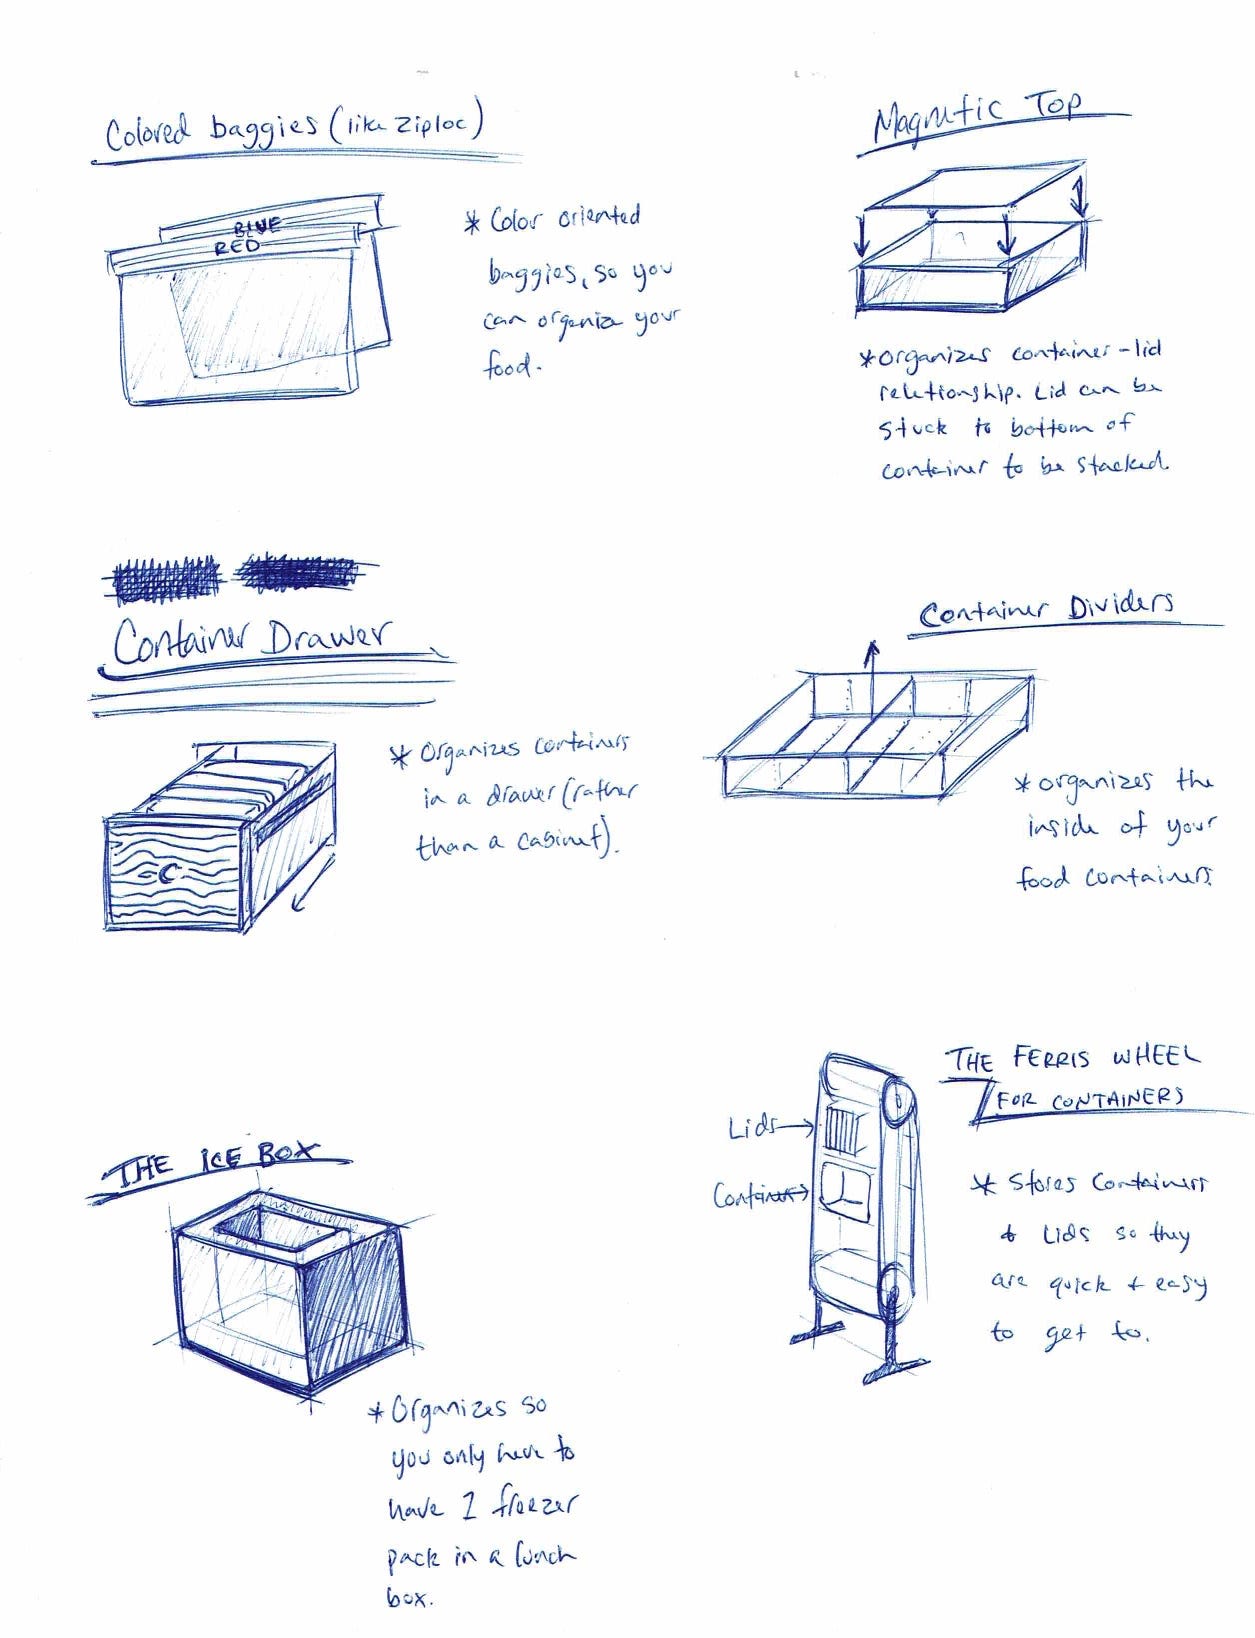 Colored baggies (like Ziploc)
BLUE
RED
* Color oriented
baggies, so you
can organize your
food.
Magnetic Top
* Organizes container-lid
relationship. Lid can be
stuck to bottom of
container to be stacked.
Container Drawer
* Organizes containers
in a drawer (rather
than a cabinet).
Container Dividers
* organizes the
inside of your
food containers.
THE ICE BOX
* Organizes so
you only have to
have 1 freezer
pack in a lunch
box.
THE FERRIS WHEEL
FOR CONTAINERS
Lids
Container
* Stores Containers
+ Lids so they
are quick + easy
to get to.